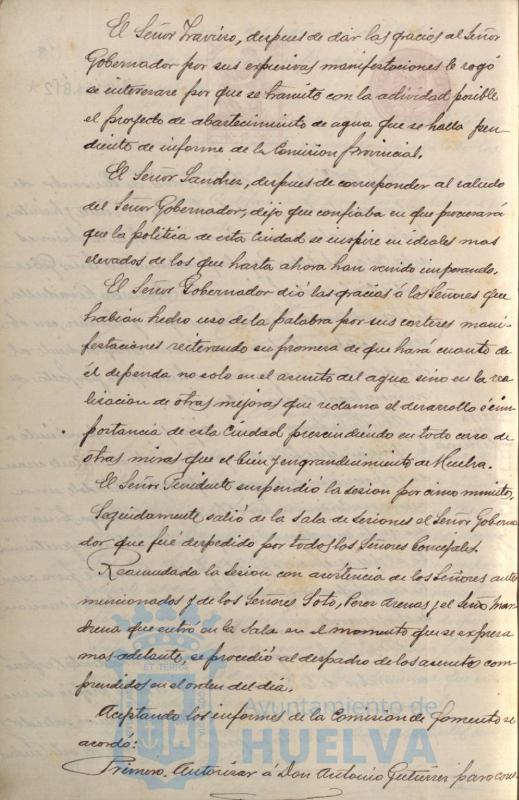 El Señor Traviero, despues de dar las gracias al Señor
Gobernador por sus expresivas manifestaciones le rogó
se interesare por que se tramite con la actividad posible
el proyecto de abastecimiento de agua que se halla pen
diente de informe de la Comision provincial.
El Señor Sanchez, despues de corresponder al saludo
del Señor Gobernador, dijo que confiaba en que procurará
que la politica de esta Ciudad se inspire en ideales mas
elevados de los que hasta ahora han venido imperando.
El Señor Gobernador dió las gracias á los Señores que
habian hecho uso de la palabra por sus corteses mani-
festaciones reiterando su promesa de que hará cuanto de
él dependa no solo en el asunto del agua sino en la rea
lizacion de otras mejoras que reclama el desarrollo é im
portancia de esta Ciudad prescindiendo en todo caso de
otras miras que el bien y engrandecimiento de Huelva.
El Señor Presidente suspendió la sesion por cinco minutos.
Seguidamente salió de la Sala de Sesiones el Señor Goberna
dor que fué despedido por todos los Señores Concejales.
Reanudada la sesion con asistencia de los Señores ante
mencionados y de los Señores Soto, Perez Arenas y el Señor Mar
chena que entró en la Sala en el momento que se expresa
mas adelante, se procedió al despacho de los asuntos com
prendidos en el orden del dia.
Aceptando los informes de la Comision de Fomento se
acordó:
Primero. Autorizar á Don Antonio Gutierrez para cons-
Ayuntamiento de
HUELVA